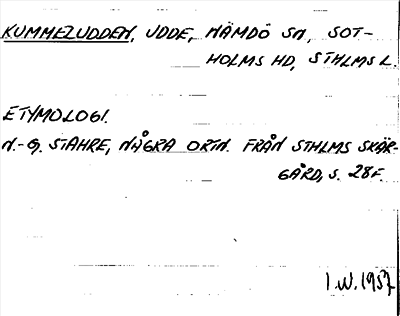 KUMMELUDDEN, UDDE, NÄMDÖ SN, SOT-
HOLMS HD, STHLMS L.
ETYMOLOGI.
N.-G. STAHRE, NÅGRA ORTN. FRÅN STHLMS SKÄR-
GÅRD, S. 28F.
I.W. 1957